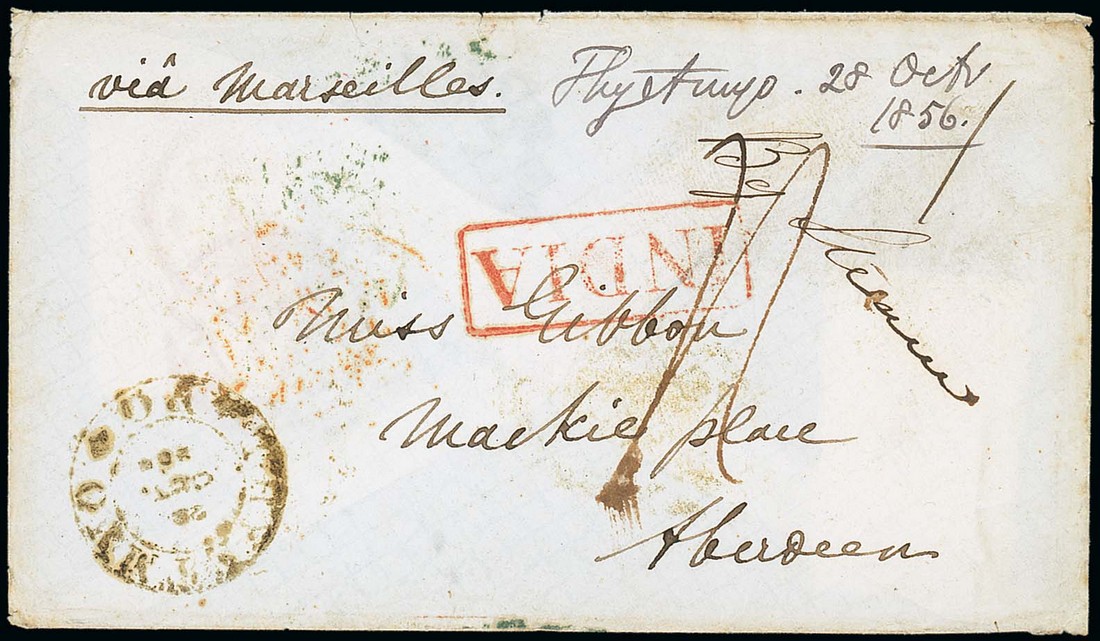 viâ Marseilles. Thyetmyo. 28 Octr
1856.
INDIA
By Steamer
Miss Gibbon
Mackie place
Aberdeen